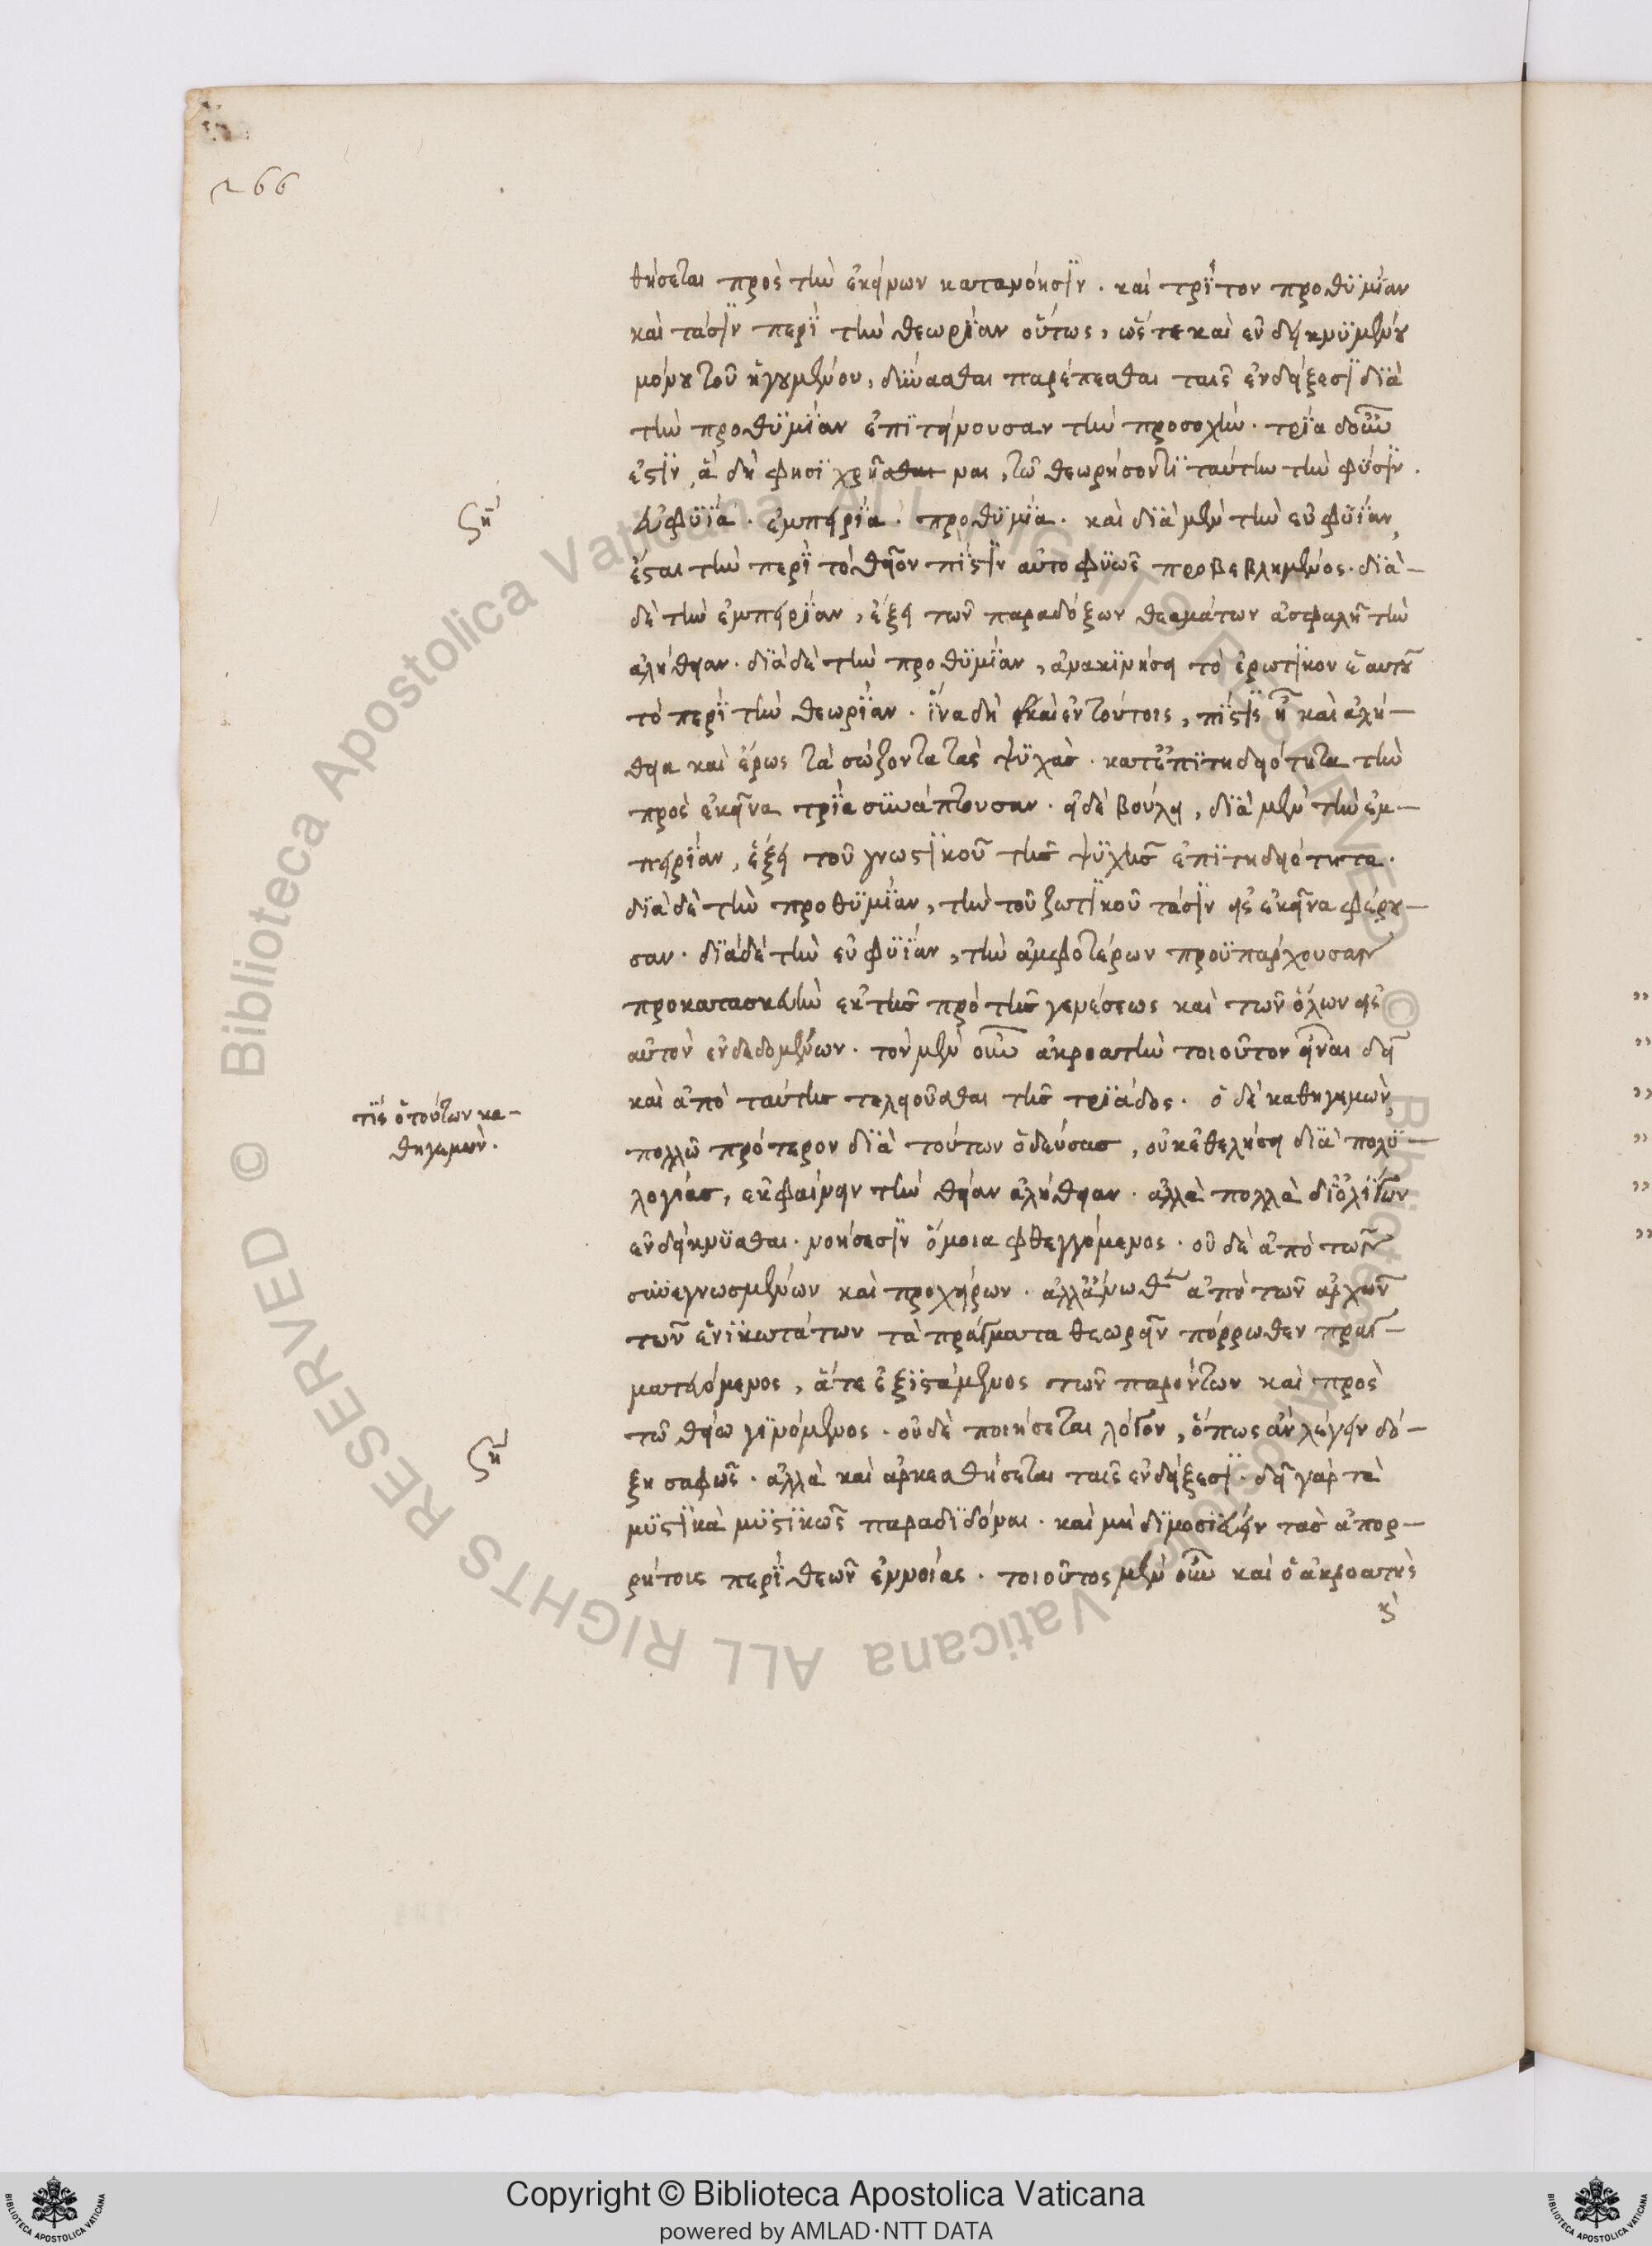 266
θήσεται πρὸς τὴν ἐκείνων κατανόησϊν · καὶ τρΐτον προθϋμΐαν
καὶ τάσϊν περΐ τὴν θεωρΐαν οὕτως, ὥστε καὶ ἐνδεικνϋμένου
μόνου τοῦ ἡγουμένου, δύνασθαι παρέπεσθαι ταῖς ἐνδείξεσϊ διὰ
τὴν προθϋμΐαν ἐπϊτείνουσαν τὴν προσοχήν · τρΐα δ' οὖν
ἐστϊν, ἃ δή φησϊ χρῆναι, τῷ θεωρήσοντϊ ταύτην τὴν φύσϊν ·
εὐφϋΐα · ἐμπειρΐα · προθϋμΐα · καὶ δϊὰ μὲν τὴν εὐφϋΐαν,
ἔσται τὴν περΐ τὸ θεῖον πίστϊν αὐτοφϋῶς προβεβλημένος · δϊὰ –
δὲ τὴν ἐμπειρΐαν, ἕξει τῶν παραδόξων θεαμάτων ἀσφαλῆ τὴν
ἀλήθειαν · δϊὰ δὲ τὴν προθϋμΐαν, ἀνακϊνήσει τὸ ἐρωτϊκὸν ἑαυτοῦ
τὸ περΐ τὴν θεωρΐαν · ἵνα δὴ καὶ ἐν τούτοις, πίστϊς ᾖ καὶ ἀλή –
θεια καὶ ἔρως τὰ σώζοντα τὰς ψϋχὰς · κατ' ἐπϊτηδειότητα τὴν
πρὸς ἐκεῖνα τρΐα συνάπτουσαν · εἰ δὲ βούλει, δϊὰ μὲν τὴν ἐμ –
πειρΐαν, ἕξει τοῦ γνωστϊκοῦ τῆς ψϋχῆς ἐπϊτηδειότητα ·
δϊὰ δὲ τὴν προθϋμΐαν, τὴν τοῦ ζωτϊκοῦ τάσϊν εἰς ἐκεῖνα φέρου –
σαν · δϊὰ δὲ τὴν εὐφϋΐαν, τὴν ἀμφοτέρων προϋπάρχουσαν
προκατασκευὴν ἐκ τῆς πρὸ τῆς γενέσεως καὶ τῶν ὅλων εἰς
αὐτὸν ἐνδεδομένων · τὸν μὲν οὖν ἀκροατὴν τοιοῦτον εἶναι δεῖ
καὶ ἀπὸ ταύτης τελειοῦσθαι τῆς τρϊάδος · ὁ δὲ καθηγεμών,
τίς ὁ τούτων κα –
θηγεμών.
πολλῷ πρότερον δϊὰ τούτων ὁδεύσας, οὐκ ἐθελήσει δϊὰ πολϋ –
λογίας, ἐκφαίνειν τὴν θείαν ἀλήθειαν · ἀλλὰ πολλὰ δϊ' ὀλίγων
ἐνδείκνϋσθαι · νοήσεσϊν ὅμοια φθεγγόμενος · οὐδὲ ἀπὸ τῶν
συνεγνωσμένων καὶ προχείρων · ἀλλ' ἄνωθεν ἀπὸ τῶν ἀρχῶν
τῶν ἑνϊκωτάτων τὰ πράγματα θεωρεῖν πόρρωθεν πραγ –
ματευόμενος, ἅτε ἐξϊστάμενος τῶν παρόντων καὶ πρὸς
τῷ θείῳ γϊνόμενος · οὐδὲ ποιήσεται λόγον, ὅπως ἂν λέγειν δό –
ξη σαφῶς · ἀλλὰ καὶ ἀρκεσθήσεται ταῖς ἐνδείξεσϊ · δεῖ γὰρ τὰ
μϋστϊκὰ μϋστϊκῶς παραδϊδόναι · καὶ μὴ δϊμοσϊεύειν τὰς ἀπορ –
ρήτοις περΐ θεῶν ἐννοίας · τοιοῦτος μὲν οὖν καὶ ὁ ἀκροατὴς
κὶ
Copyright © Biblioteca Apostolica Vaticana
powered by AMLAD·NTT DATA